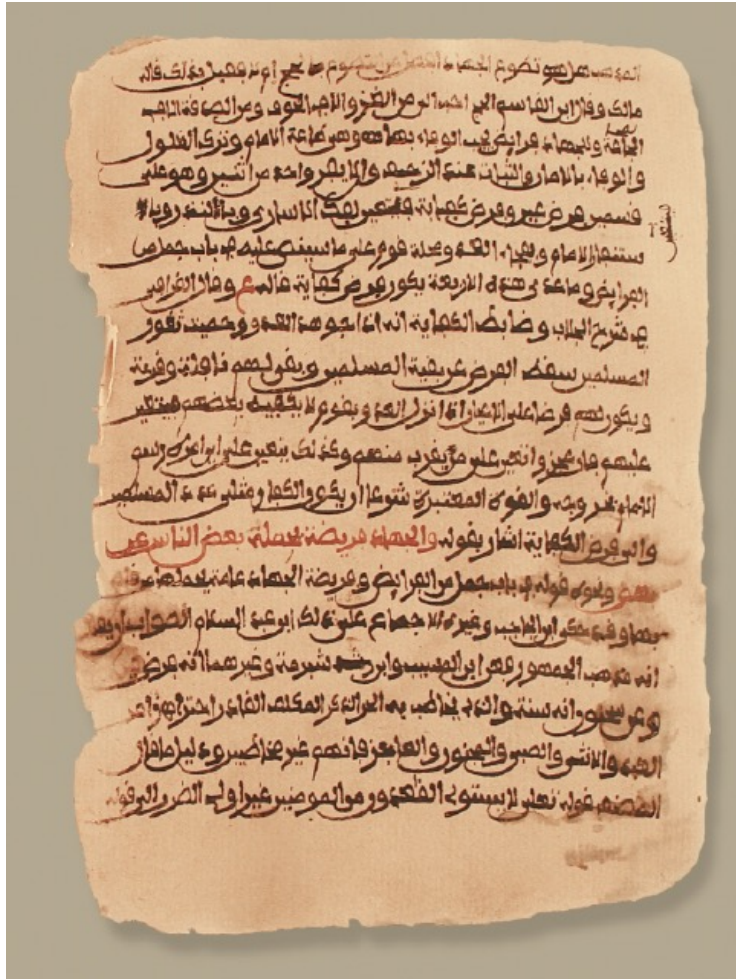 المذهب هل هو تطوع الجهاد افضل من تطوع الحج ام لا فقيل بذلك قاله
مالك وقال ابن القاسم الحج احب الي من الغزو الا في الخوف ومن الصدقة الا في
المجاعة وللجهاد فرايض يجب الوفاء بها وهي طاعة الامام وترك الغلول
والوفاء بالامان والثبات عند الزحف والا يفر واحد من اثنين وهو على
قسمين فرض عين وفرض كفاية فيتعين لفك الاسارى وبالنذر وبا
ستنفار الامام وفجاء العدو محلة قوم على ما سينص عليه في باب جمل من
الفرايض وما عدى هذه الاربعة يكون فرض كفاية قاله ع وقال القرافي
في شرح الجلاب وضابط الكفاية انه اذا جوهد العدو وحميت ثغور
المسلمين سقط الفرض عن بقية المسلمين ويبقى لهم نافلة وقربة
ويكون لهم فرضا على الاعيان اذا نزل العدو بقوم لا يكفيه بعضهم فيتعين
عليهم فان عجزوا تعين على من يقرب منهم وكذلك يتعين على
الامام خروجه والقوة المعتبرة شرعا ان يكون الكفار مثلي عدد المسلمين
والى فرض الكفاية اشار بقوله والجهاد فريضة يحمله بعض الناس عن
بعض ونحوه قوله في باب جمل من الفرايض وفريضة الجهاد عامة يحملها من قام
بها وقد حكى ابن الحاجب وغيره الاجماع على ذلك ابن عبد السلام الصواب
انه مذهب الجمهور فعن ابن المسيب وابن شبرمة وغيرهما انه فرض عين
وعن سحنون انه سنة والذي يخاطب به الحر الذكر المكلف القادر احترازا من
العبد والانثى والصبي والمجنون والعاجز فانهم غير مخاطبين ودليل ما قال
المصنف قوله تعلى لا يستوي القعدون من المومنين غير اولي الضرر الى قوله